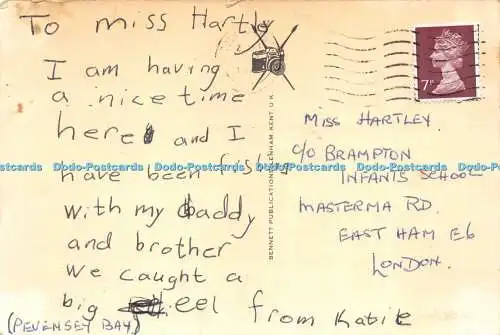 To miss Hartly
I am having
a nice time
here and I
have been fishing
with my daddy
and brother
we caught a
big eel from Katie
(PEVENSEY BAY)
BENNETT PUBLICATIONS KENT U.K.
7P
MISS HARTLEY
C/O BRAMPTON
INFANTS SCHOOL
MASTERMA RD.
EAST HAM E6
LONDON.
Dodo-Postcards Dodo-Postcards Dodo-Postcards Dodo-Postcards Dodo-Postcards